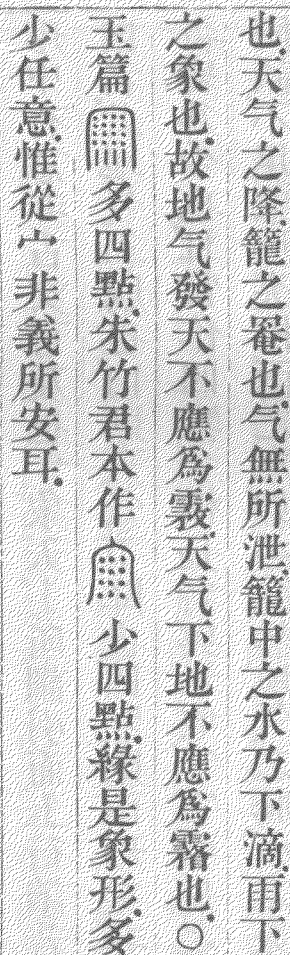 也。天气之降。籠之罨也。气無所泄。籠中之水乃下滴。雨下
之象也。故地气發天不應爲霚。天气下地不應爲霿也。○
玉篇多四點。朱竹君本作少四點。緣是象形。多
少任意。惟從宀非義所安耳。